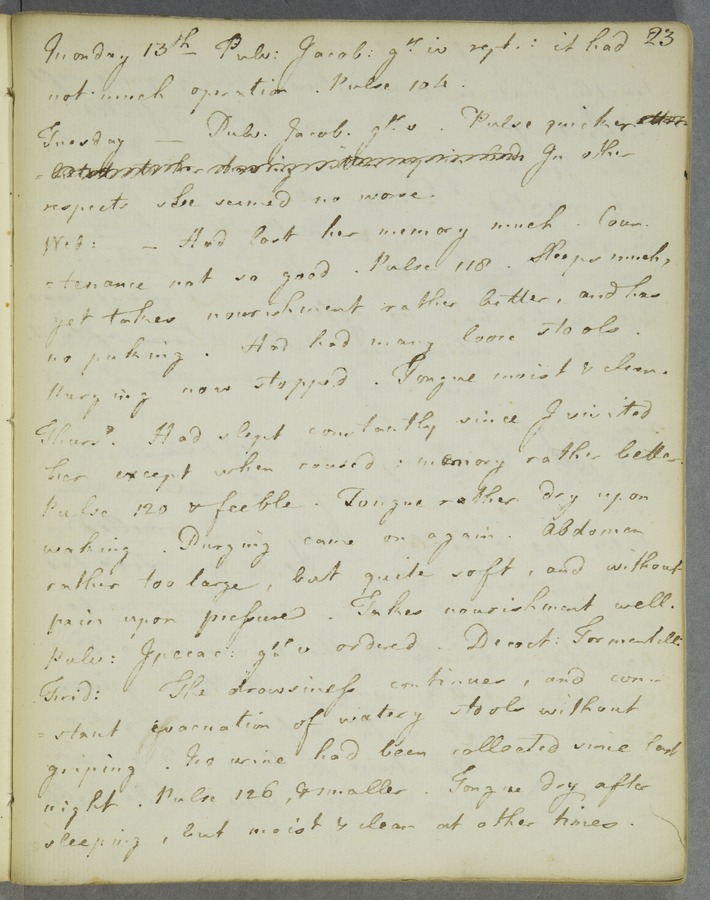 23
Monday 13th Pulv: Jacob: grs iv rept.: it had
not much operation. Pulse 104.
Tuesday — Pulv. Jacob. grs. v. Pulse quicker.
In other
respects she seemed no worse.
Wed: — Had lost her memory much. Coun-
=tenance not so good. Pulse 118. Sleeps much,
yet takes nourishment rather better, and has
no puking. Had had many loose stools.
Purging now stopped. Tongue moist & clean.
Thursd. Had slept constantly since I visited
her except when roused: memory rather better.
Pulse 120 & feeble. Tongue rather dry upon
waking. Purging came on again. Abdomen
rather too large, but quite soft, and without
pain upon pressure. Takes nourishment well.
Pulv: Ipecac: grs v ordered. Decoct: Tormentill:
Frid: The drowsiness continues, and con-
=stant evacuation of watery stools without
griping. No urine had been collected since last
night. Pulse 126, & smaller. Tongue dry after
sleeping, but moist & clean at other times.